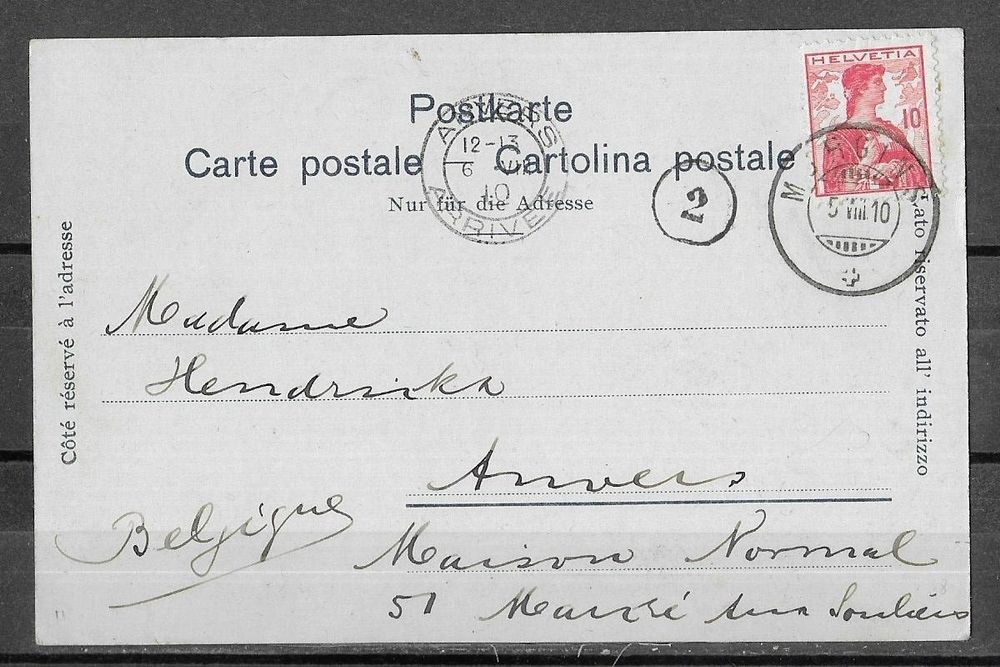 HELVETIA
10
Postkarte
Carte postale Cartolina postale
Nur für die Adresse
ANVERS
12-13
6 VIII
10
ARRIVÉE
2
5.VIII.10
Côté réservé à l'adresse
Lato riservato all' indirizzo
Madame
Hendrickx
Anvers
Belgique
Maison Normal
51 Marché aux Souliers